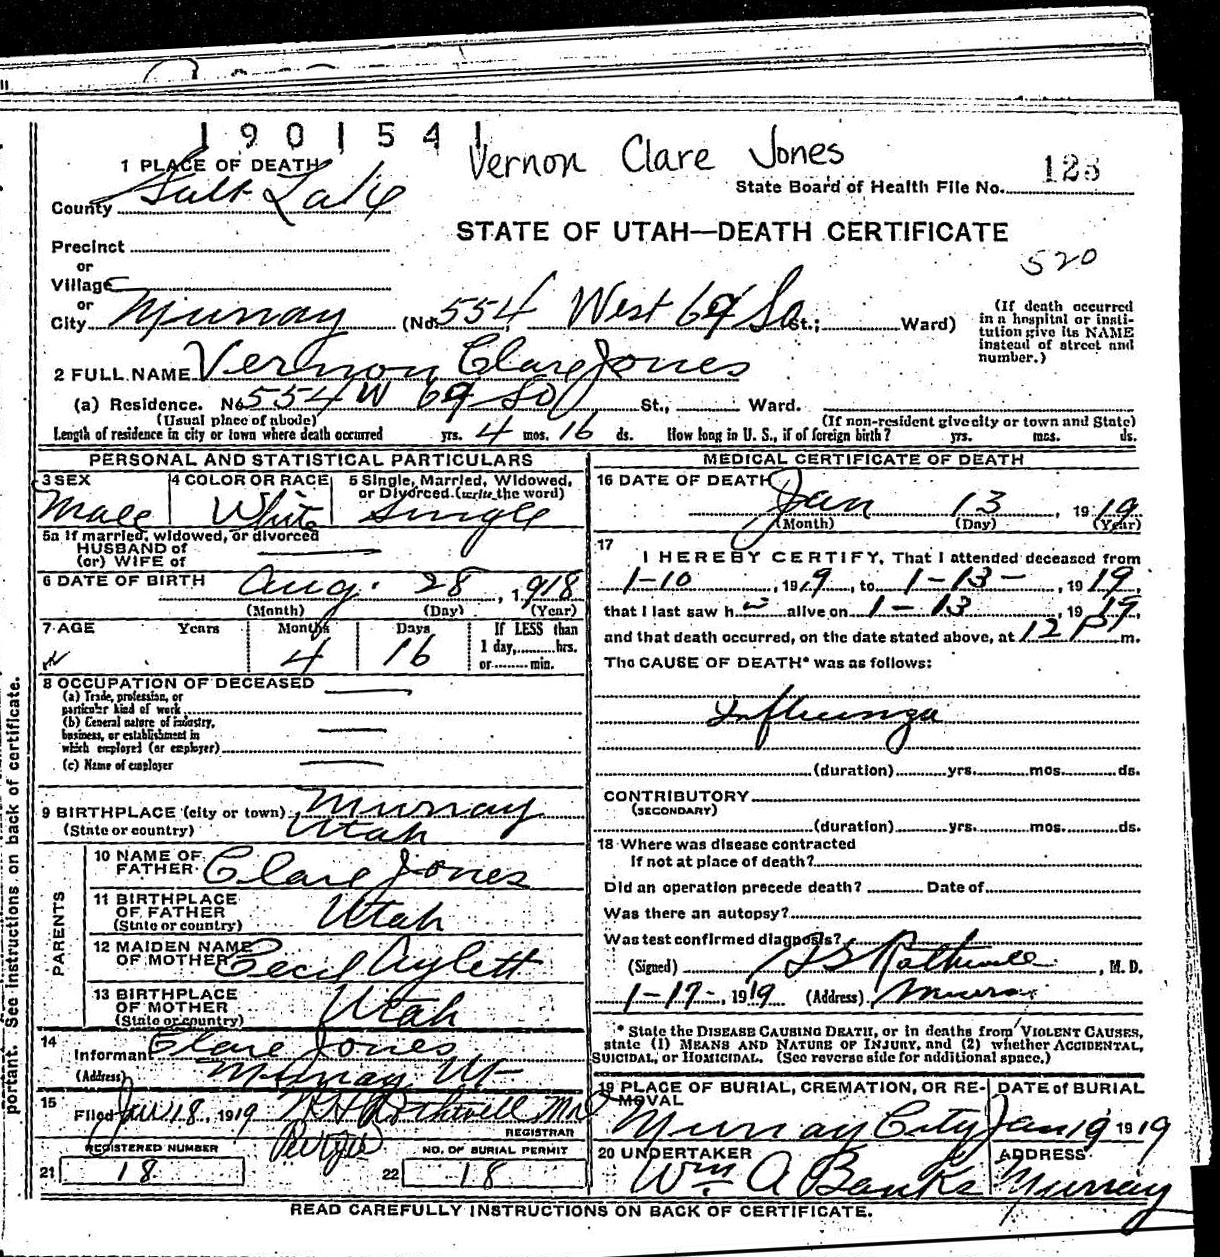 1901541
Vernon Clare Jones
1 PLACE OF DEATH
State Board of Health File No. 128
County Salt Lake
STATE OF UTAH—DEATH CERTIFICATE
520
Precinct
or
Village
or
City Murray (No. 554, West 69 So St.; Ward)
(If death occurred in a hospital or insti-
tution give its NAME instead of street and number.)
2 FULL NAME Vernon Clare Jones
(a) Residence. No 554 W 69 So St., Ward.
(Usual place of abode) (If non-resident give city or town and State)
Length of residence in city or town where death occurred yrs. 4 mos. 16 ds. How long in U. S., if of foreign birth? yrs. mos. ds.
PERSONAL AND STATISTICAL PARTICULARS
3 SEX Male
4 COLOR OR RACE White
5 Single, Married, Widowed, or Divorced. (write the word) Single
5a If married, widowed, or divorced
HUSBAND of
(or) WIFE of
6 DATE OF BIRTH Aug. 28, 1918
(Month) (Day) (Year)
7 AGE Years Months Days If LESS than
4 16 1 day, hrs.
or min.
8 OCCUPATION OF DECEASED
(a) Trade, profession, or
particular kind of work
(b) General nature of industry,
business, or establishment in
which employed (or employer)
(c) Name of employer
9 BIRTHPLACE (city or town) Murray
(State or country) Utah
PARENTS
10 NAME OF FATHER Clare Jones
11 BIRTHPLACE OF FATHER Utah
(State or country)
12 MAIDEN NAME OF MOTHER Cecil Aylett
13 BIRTHPLACE OF MOTHER Utah
(State or country)
14 Informant Clare Jones
(Address) Murray Ut
15 Filed Jan 18, 1919 Rothwell Md
REGISTRAR
REGISTERED NUMBER NO. OF BURIAL PERMIT
21 18 22 18
MEDICAL CERTIFICATE OF DEATH
16 DATE OF DEATH
Jan 13, 1919
(Month) (Day) (Year)
17
I HEREBY CERTIFY, That I attended deceased from
1-10, 1919, to 1-13-, 1919,
that I last saw h alive on 1-13, 1919,
and that death occurred, on the date stated above, at 12 P m.
The CAUSE OF DEATH* was as follows:
Influenza
(duration) yrs. mos. ds.
CONTRIBUTORY
(SECONDARY)
(duration) yrs. mos. ds.
18 Where was disease contracted
if not at place of death?
Did an operation precede death? Date of
Was there an autopsy?
Was test confirmed diagnosis?
(Signed) Rothwell, M. D.
1-17-, 1919 (Address) Murray
* State the DISEASE CAUSING DEATH, or in deaths from VIOLENT CAUSES,
state (1) MEANS AND NATURE OF INJURY, and (2) whether ACCIDENTAL,
SUICIDAL, or HOMICIDAL. (See reverse side for additional space.)
19 PLACE OF BURIAL, CREMATION, OR RE-
MOVAL
Murray City
DATE of BURIAL
Jan 19 1919
20 UNDERTAKER
Wm. A Banks
ADDRESS
Murray
READ CAREFULLY INSTRUCTIONS ON BACK OF CERTIFICATE.
portant. See instructions on back of certificate.